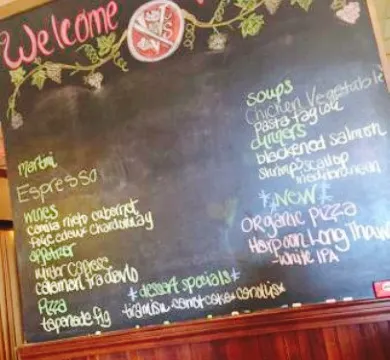 Welcome
martini
Espresso
wines
nieto cabernet
chardonnay
appetizer
winter caprese
calamari fra diavlo
Pizza
tapenade fig
*dessert specials*
tiramisu carrot cake cannolis
soups
Chicken Vegetable
pasta fagioli
dinners
blackened salmon
shrimp scallop
*NEW*
ORGANIC PIZZA
Harpoon Long Thaw
- White IPA